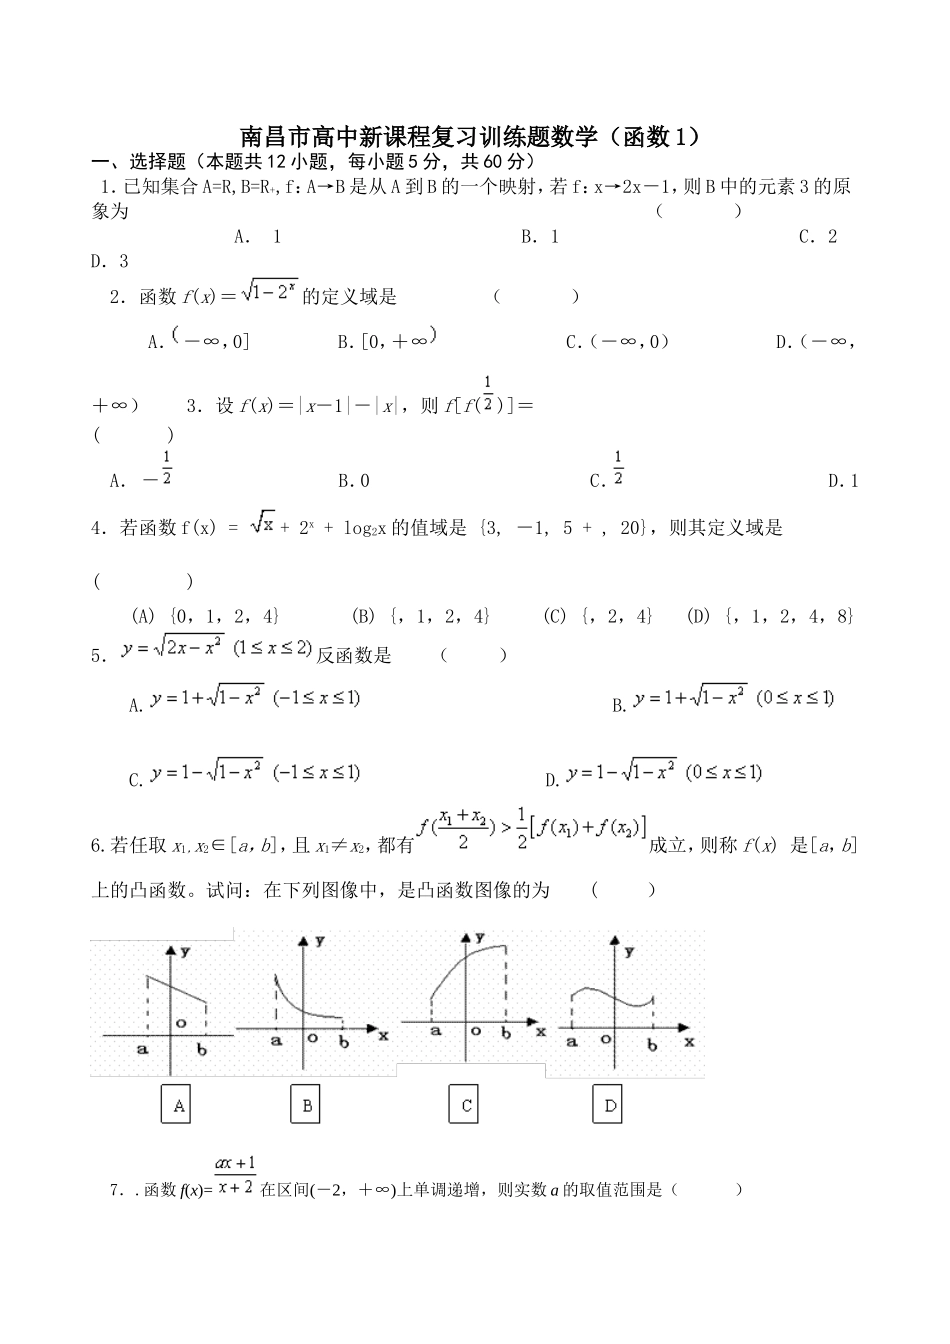 南昌市高中新课程复习训练题数学（函数1）
一、选择题（本题共12小题，每小题5分，共60分）
1．已知集合A=R,B=R+,f:A→B是从A到B的一个映射,若f:x→2x－1,则B中的元素3的原
象为 （ ）
A． 1 B．1 C．2
D．3
2．函数f(x)＝√(1－2^x) 的定义域是 （ ）
A.(－∞,0] B.[0,＋∞) C.(－∞,0) D.(－∞,
＋∞) 3．设f(x)＝|x－1|－|x|,则f[f(1/2)]＝
( )
A． －1/2 B.0 C.1/2 D.1
4．若函数f(x) = √x + 2^x + log₂x的值域是 {3, －1, 5 + , 20},则其定义域是
( )
(A) {0，1，2，4} (B) {，1，2，4} (C) {，2，4} (D) {，1，2，4，8}
5．y=√(2x－x²) (1≤x≤2)反函数是 （ ）
A. y=1+√(1－x²) (－1≤x≤1) B. y=1+√(1－x²) (0≤x≤1)
C. y=1－√(1－x²) (－1≤x≤1) D. y=1－√(1－x²) (0≤x≤1)
6.若任取x₁,x₂∈[a，b],且x₁≠x₂,都有f((x₁+x₂)/2)>1/2[f(x₁)+f(x₂)]成立,则称f(x) 是[a，b]
上的凸函数。试问：在下列图像中，是凸函数图像的为 ( )
y o a b
y a o b x
y a o b x
y a o b x
A B C D
7．.函数f(x)=(ax+1)/(x+2)在区间(－2，＋∞)上单调递增，则实数a的取值范围是（ ）